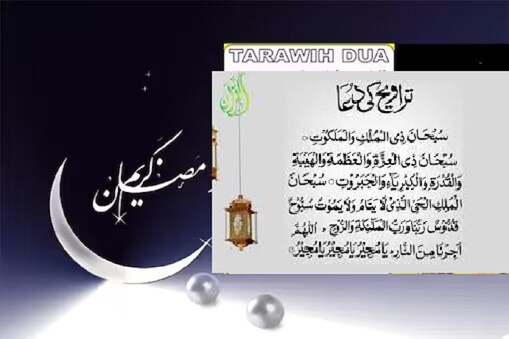 TARAWIH DUA
تراویح کی دعا
سُبْحَانَ ذِي الْمُلْكِ وَالْمَلَكُوتِ ○
سُبْحَانَ ذِي الْعِزَّةِ وَالْعَظَمَةِ وَالْهَيْبَةِ
وَالْقُدْرَةِ وَالْكِبْرِيَاءِ وَالْجَبَرُوتِ ○ سُبْحَانَ
الْمَلِكِ الْحَيِّ الَّذِي لَا يَنَامُ وَلَا يَمُوتُ سُبُّوحٌ
قُدُّوسٌ رَبُّنَا وَرَبُّ الْمَلٰئِكَةِ وَالرُّوحِ ○ اَللّٰهُمَّ
اَجِرْنَا مِنَ النَّارِ، يَا مُجِيْرُ يَا مُجِيْرُ يَا مُجِيْرُ
رمضان كريم